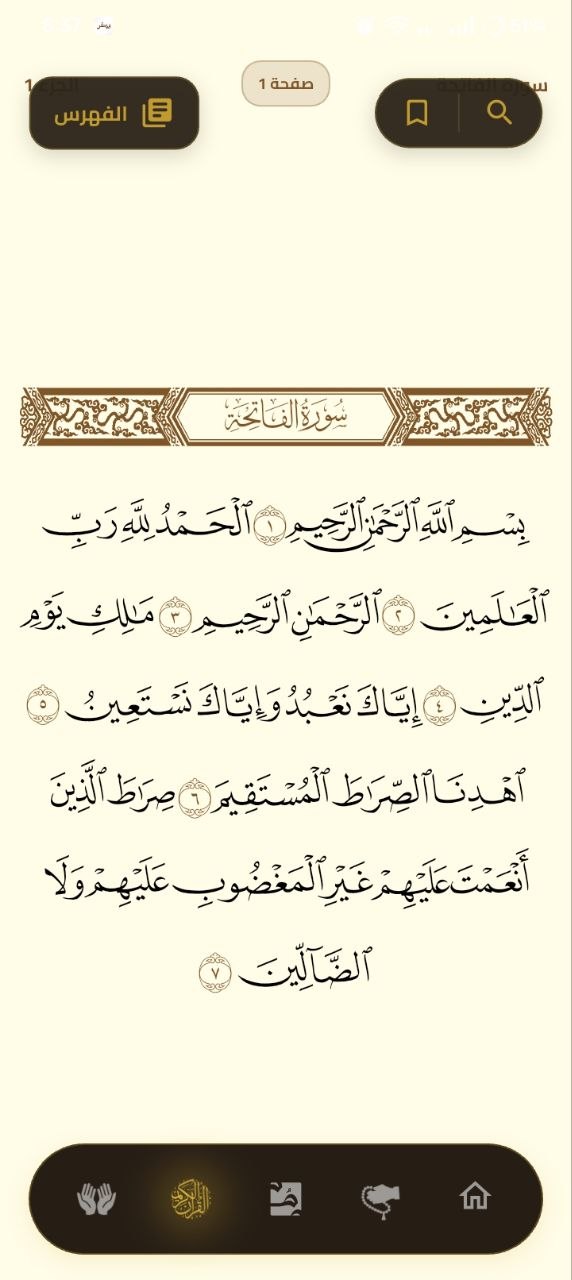 سورة الفاتحة
صفحة 1
الجزء 1
الفهرس
سُورَةُ الفَاتِحَةِ
بِسْمِ ٱللَّهِ ٱلرَّحْمَٰنِ ٱلرَّحِيمِ ١ ٱلْحَمْدُ لِلَّهِ رَبِّ
ٱلْعَٰلَمِينَ ٢ ٱلرَّحْمَٰنِ ٱلرَّحِيمِ ٣ مَٰلِكِ يَوْمِ
ٱلدِّينِ ٤ إِيَّاكَ نَعْبُدُ وَإِيَّاكَ نَسْتَعِينُ ٥
ٱهْدِنَا ٱلصِّرَٰطَ ٱلْمُسْتَقِيمَ ٦ صِرَٰطَ ٱلَّذِينَ
أَنْعَمْتَ عَلَيْهِمْ غَيْرِ ٱلْمَغْضُوبِ عَلَيْهِمْ وَلَا
ٱلضَّآلِّينَ ٧